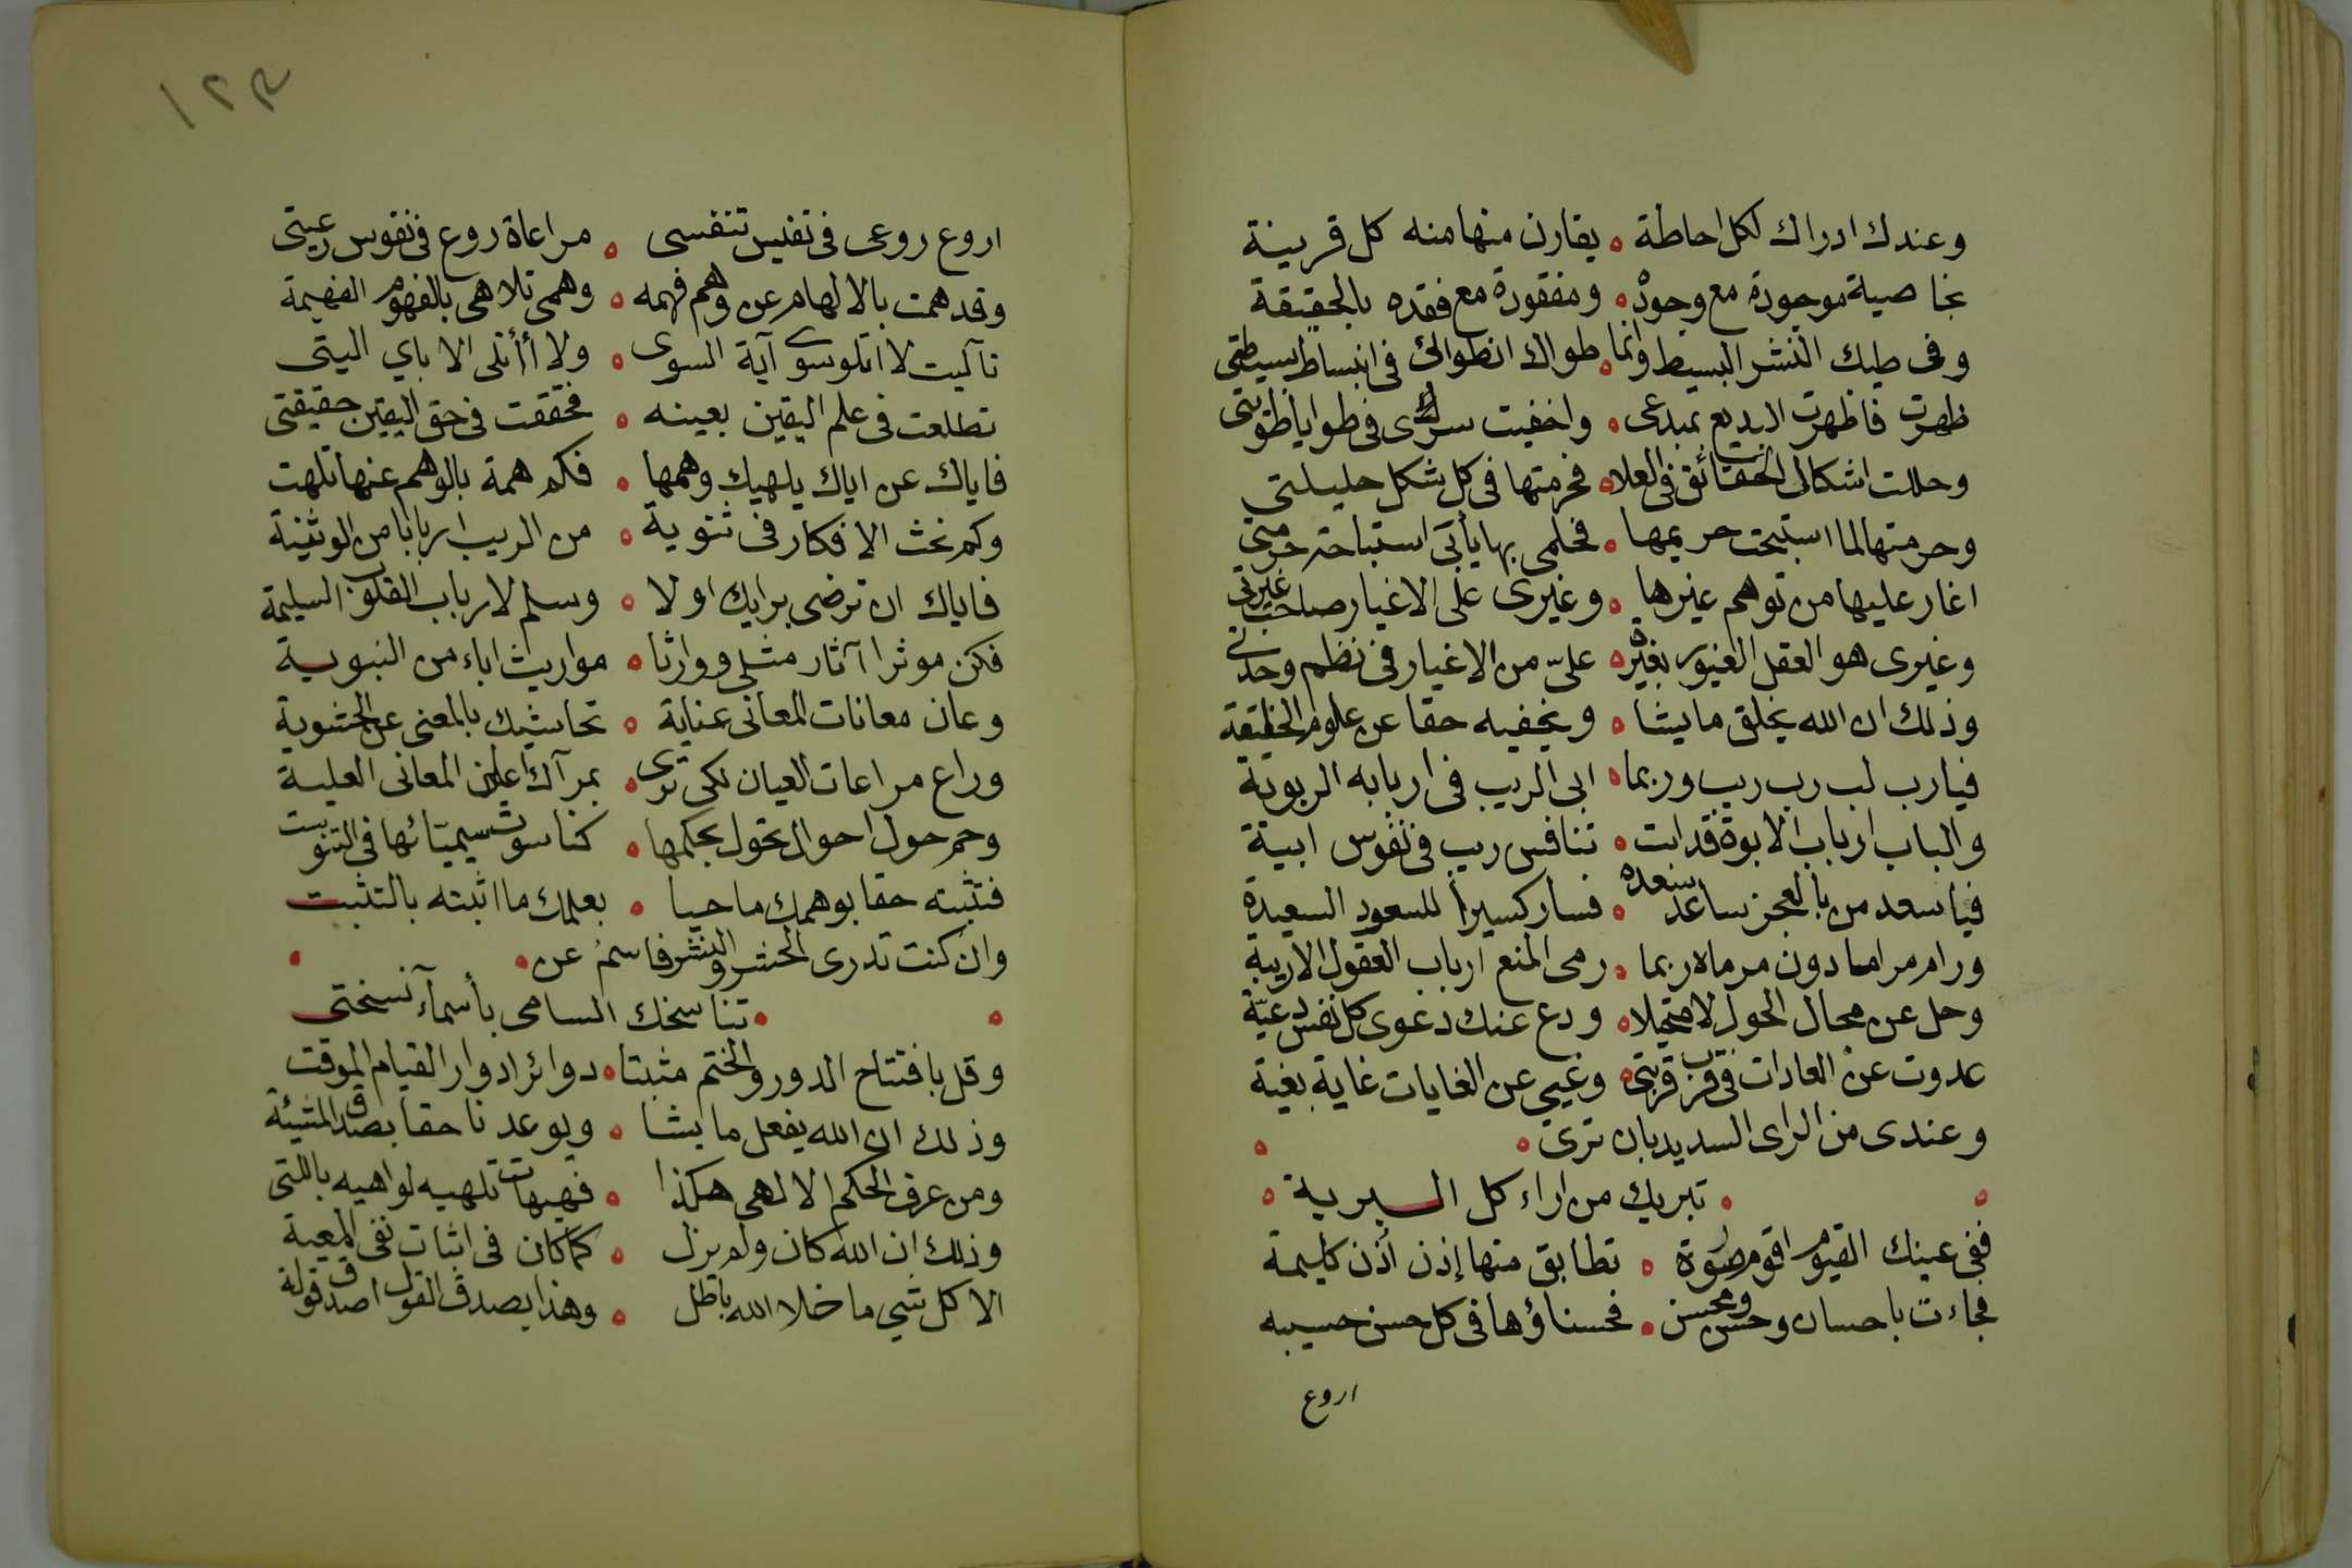 وعندك ادراك لكل احاطة ٥ يقارن منها منه كل قرينة
بخاصية موجودة مع وجوده ٥ ومفقودة مع فقده بالحقيقة
وفى طيك النشر البسيط وانما ٥ طواك انطوائى فى انبساط بسيطتى
ظهرت فاظهرت البديع بمبدعى ٥ واخفيت سرى فى طوايا طويتى
وحللت اشكال الحقائق فى العلا ٥ فحرمتها فى كل شكل حليلتى
وحرمتها لما استبحت حريمها ٥ فحلمى بها يأتى استباحة حرمتى
اغار عليها من توهم غيرها ٥ وغيرى على الاغيار صاحب غيرتى
وغيرى هو العقل الغيور بغيره ٥ علىّ من الاغيار فى نظم وحدتى
وذلك ان الله يخلق ما يشا ٥ ويخفيه حقا عن علوم الخليقة
فيارب لب رب ريب وربما ٥ ابى الريب فى اربابه الربوبة
والباب ارباب الابوة قد ابت ٥ تنافس ريب فى نفوس ابية
فيا سعد من بالعجز ساعد سعده ٥ فسار كسيرا للسعود السعيدة
ورام مراما دون مرماه ربما ٥ رمى المنع ارباب العقول الاريبة
وحل عن محال الحول لا متحيلا ٥ ودع عنك دعوى كل نفس دعيّة
عدوت عن العادات فى قرب قربتى ٥ وغيبى عن الغايات غاية بغية
وعندى من الراى السديد بان ترى ٥
٥ تبريك من اراء كل البرية ٥
ففى عينك القيوم اقوم صورة ٥ تطابق منها إذن أذن كليمة
فجاءت باحسان وحسن ومحسن ٥ فحسناؤها فى كل حسن حسيبه
اروع
١٢٣
اروع روعى فى تفنيس تنفسى ٥ مراعاة روع فى نفوس رعيتى
وقد همت بالالهام عن وهم فهمه ٥ وهمى تلاهى بالفهوم الفهيمة
تآليت لا اتلو سوى آية السوى ٥ ولا أأتلى الا باي اليتى
تطلعت فى علم اليقين بعينه ٥ فحققت فى حق اليقين حقيقتى
فاياك عن اياك يلهيك وهمها ٥ فكم همة بالوهم عنها تلهت
وكم نحث الافكار فى ثنوية ٥ من الريب اربابا من الوثنية
فاياك ان ترضى برايك اولا ٥ وسلم لارباب القلوب السليمة
فكن موثرا آثار مثلى ووارثا ٥ مواريث اباء من النبوية
وعان معانات المعانى عناية ٥ تحاشيك بالمعنى عن الحشوية
وراع مراعات العيان لكى ترى ٥ بمرآك اعلان المعانى العلية
وحم حول احوال تحول بحكمها ٥ كناسوت سيميّائها فى التنوبت
فتثبته حقا بوهمك ماحيا ٥ بعلمك ما اثبته بالتثبت
وان كنت تدرى الحشر والنشر فاسمُ عن ٥
٥ تناسخك السامى بأسمآء نسختى
وقل بافتتاح الدور والختم مثبتا ٥ دوائر ادوار القيام الموقت
وذلك ان الله يفعل ما يشا ٥ ويوعدنا حقا بصدق المشيئة
ومن عرف الحكم الالهى هكذا ٥ فهيهات تلهيه لواهيه باللتى
وذلك ان الله كان ولم يزل ٥ كما كان فى اثبات نفى المعية
الا كل شيي ما خلا الله باطل ٥ وهذا يصدق القول اصدق قولة